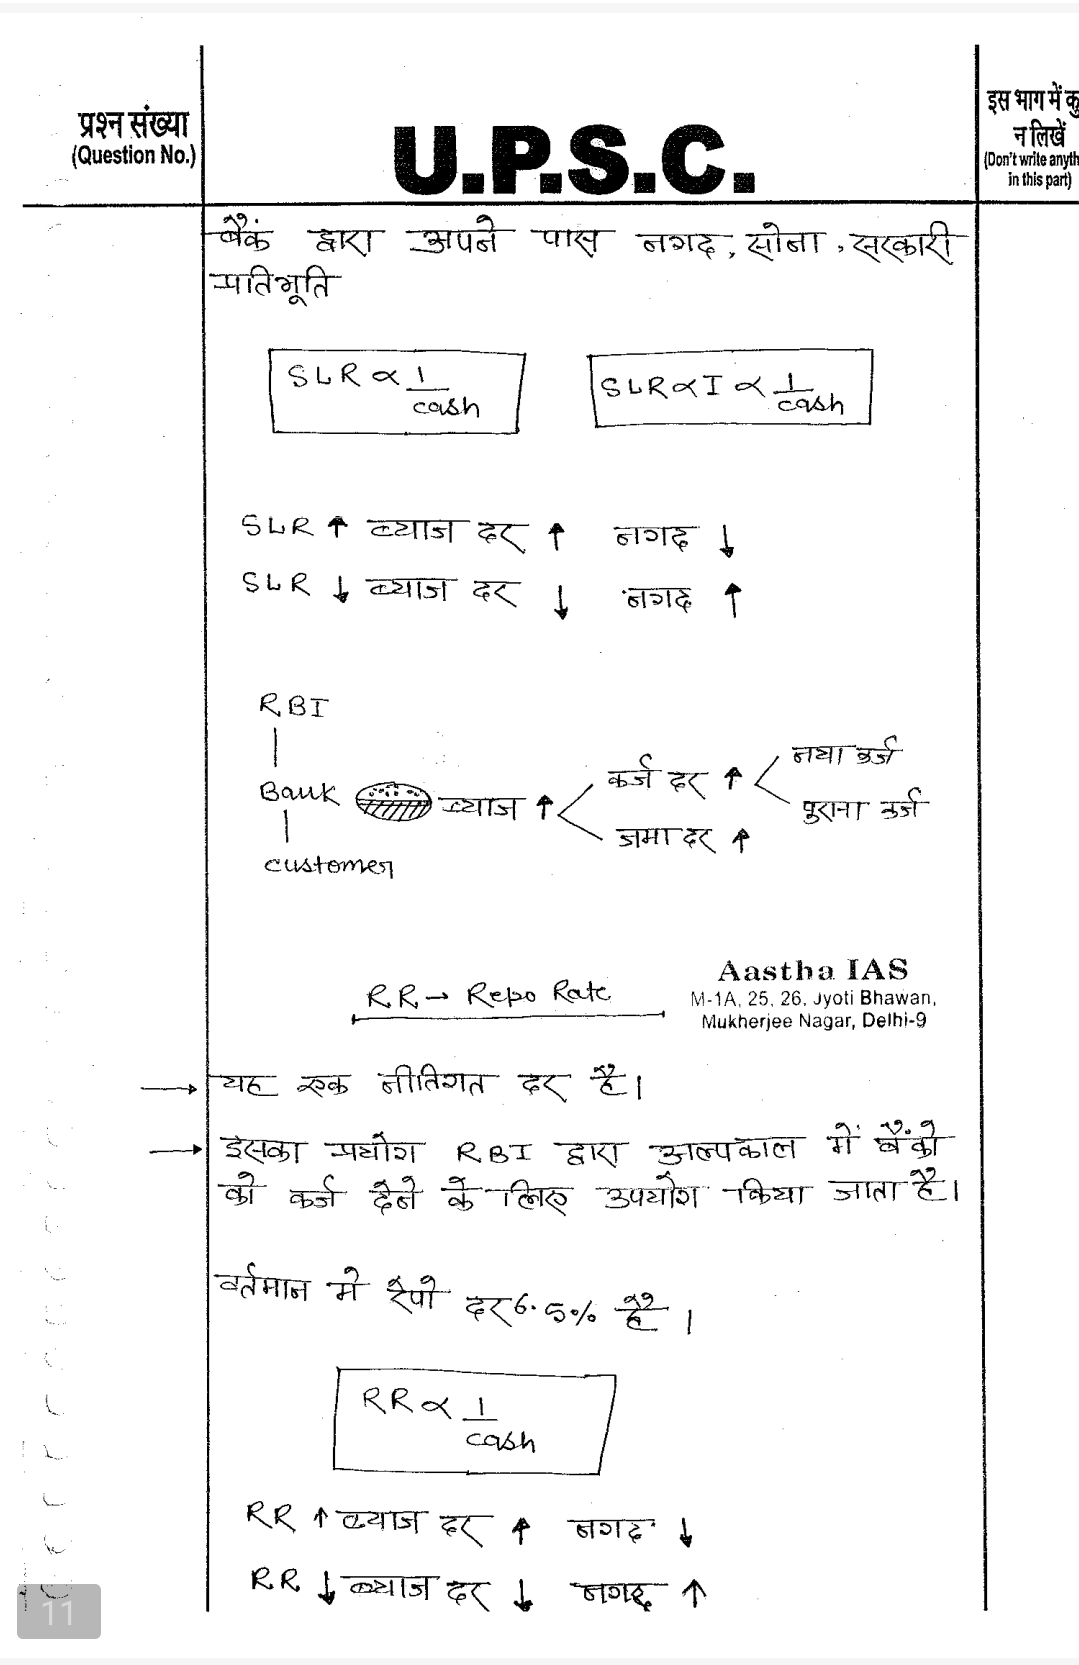 प्रश्न संख्या
(Question No.)
U.P.S.C.
इस भाग में कु
न लिखें
(Don't write anyth
in this part)
बैंक द्वारा अपने पास नगद, सोना, सरकारी
प्रतिभूति
SLR ∝ 1/cash
SLR ∝ I ∝ 1/cash
SLR ↑ ब्याज दर ↑ नगद ↓
SLR ↓ ब्याज दर ↓ नगद ↑
RBI
Bank ब्याज ↑
customer
कर्ज दर ↑
जमा दर ↑
नया कर्ज
पुराना कर्ज
RR → Repo Rate
Aastha IAS
M-1A, 25, 26, Jyoti Bhawan,
Mukherjee Nagar, Delhi-9
→ यह एक नीतिगत दर है।
→ इसका प्रयोग RBI द्वारा अल्पकाल में बैंको
को कर्ज देने के लिए उपयोग किया जाता है।
वर्तमान मे रेपो दर 6.5% है।
RR ∝ 1/cash
RR ↑ ब्याज दर ↑ नगद ↓
RR ↓ ब्याज दर ↓ नगद ↑
11